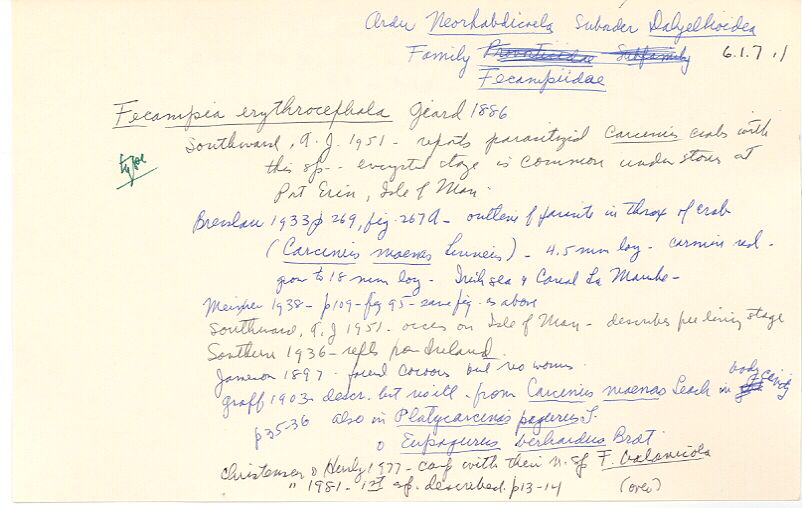 Order Neorhabdicoela Suborder Dalyellioidea
Family Provorticidae Subfamily 6.1.7.1
Fecampiidae
Fecampia erythrocephala Giard 1886
Southward, A.J. 1951 - reports parasitized Carcinus crabs with
type
this sp - encysted stage is common under stones at
Port Erin, Isle of Man.
Breslau 1933 p 269, fig. 267A - outline of parasite in thorax of crab
(Carcinus maenas Linneis) - 4.5 mm long - carmin red -
grow to 18 mm long - Irish sea & Canal La Manche -
Meixner 1938 - p109 - fig 95 - same fig. as above
Southward, A.J 1951 - occurs on Isle of Man - describes free living stage
Southern 1936 - refts from Ireland
Jameson 1897 - found cocoons but no worms
Graff 1903 - descr. but no ill. - from Carcinus maenas Leach in body cavity
p35-36 also in Platycarcinus pagurus L.
o Eupagurus berhardus Brdt
Christensen & Hurley 1977 - comp with their n. sp F. balanicola
" 1981 - 1st sp. described. p13-14 (over)